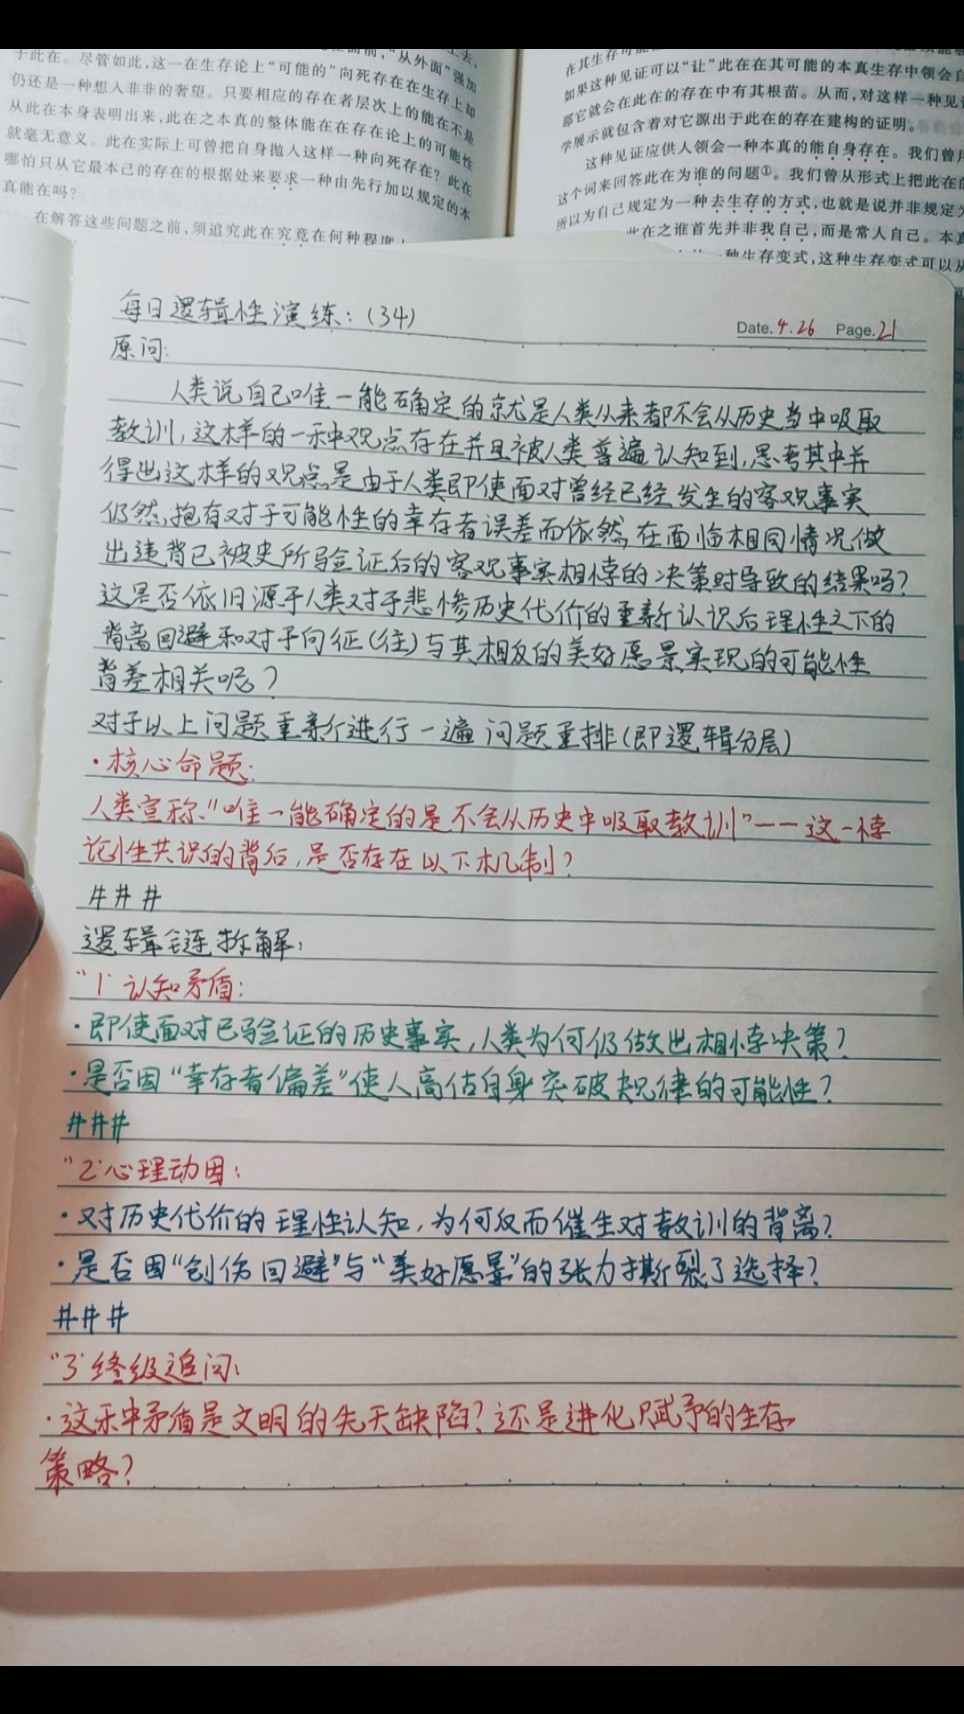 于此在。尽管如此,这一在生存论上“可能的”向死存在在生存上却
仍还是一种想入非非的奢望。只要相应的存在者层次上的能在不是
从此在本身表明出来,此在之本真的整体能在在存在论上的可能性
就毫无意义。此在实际上可曾把自身抛入这样一种向死存在?此在
哪怕只从它最本己的存在的根据处来要求一种由先行加以规定的本
真能在吗?
在解答这些问题之前,须追究此在究竟在何种程度
在其生存可能
如果这种见证可以“让”此在在其可能的本真生存中领会自
那它就会在此在的存在中有其根苗。从而,对这样一种见证
学展示就包含着对它源出于此在的存在建构的证明。
这种见证应供人领会一种本真的能自身存在。我们曾用
这个词来回答此在为谁的问题①。我们曾从形式上把此在的
所以为自己规定为一种去生存的方式,也就是说并非规定为
此在之谁首先并非我自己,而是常人自己。本真
种生存变式,这种生存变式可以从
每日逻辑性演练:(34)
Date. 4.26 Page. 21
原问:
人类说自己唯一能确定的就是人类从来都不会从历史当中吸取
教训,这样的一种观点存在并且被人类普遍认知到,思考其中并
得出这样的观点是由于人类即使面对曾经已经发生的客观事实
仍然,抱有对于可能性的幸存者误差而依然,在面临相同情况做
出违背已被史所验证后的客观事实相悖的决策时导致的结果吗?
这是否依旧源于人类对于悲惨历史代价的重新认识后理性之下的
背离回避和对于向征(往)与其相反的美好愿景实现的可能性
背差相关呢?
对于以上问题重新进行一遍问题重排(即逻辑分层)
·核心命题:
人类宣称“唯一能确定的是不会从历史中吸取教训”——这一悖
论性共识的背后,是否存在以下机制?
###
逻辑链拆解:
“1”认知矛盾:
·即使面对已验证的历史事实,人类为何仍做出相悖决策?
·是否因“幸存者偏差”使人高估自身突破规律的可能性?
###
“2”心理动因:
·对历史代价的理性认知,为何反而催生对教训的背离?
·是否因“创伤回避”与“美好愿景”的张力撕裂了选择?
###
“3”终级追问:
·这种矛盾是文明的先天缺陷?还是进化赋予的生存
策略?